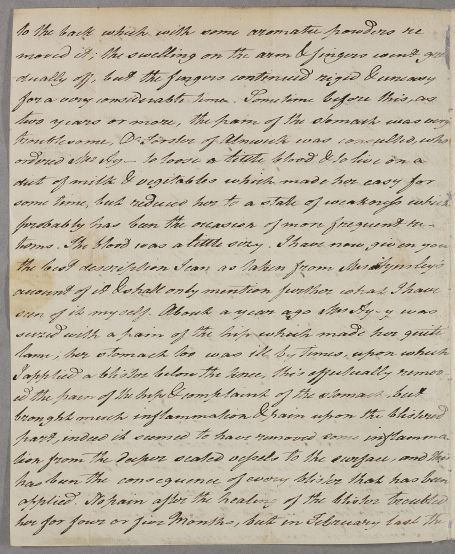 to the back which with some aromatic powders re
moved it; the swelling on the arm & fingers went gra
dually off, but the fingers continued rigid & uneasy
for a very considerable time. Sometime before this, as
two years or more, the pain of the stomach was very
troublesome, Dr. of Alnwick was consulted, who
ordered Mrs Hy— to loose a little blood & to live on a
diet of milk & vegitables which made her easy for
some time, but reduced her to a state of weakness which
probably has been the occasion of more frequent re-
turns. The blood was a little sizy. I have now given you
the best description I can as taken from Mrs
account of it & shall only mention further what I have
seen of it myself. About a year ago Mrs Hy-y was
seized with a pain of the hip which made her quite
lame; her stomach too was ill by times, upon which
I applied a blister below the knee, this effectually remov
ed the pain of the hip & complaint of the stomach but
brought much inflammation & pain upon the blistered
part, indeed it seemed to have removed some inflamma
tion from the deeper seated vessels to the surface, and this
has been the consequence of every blister that has been
applied. No pain after the healing of the blister troubled
her for four or five Months, but in February last the